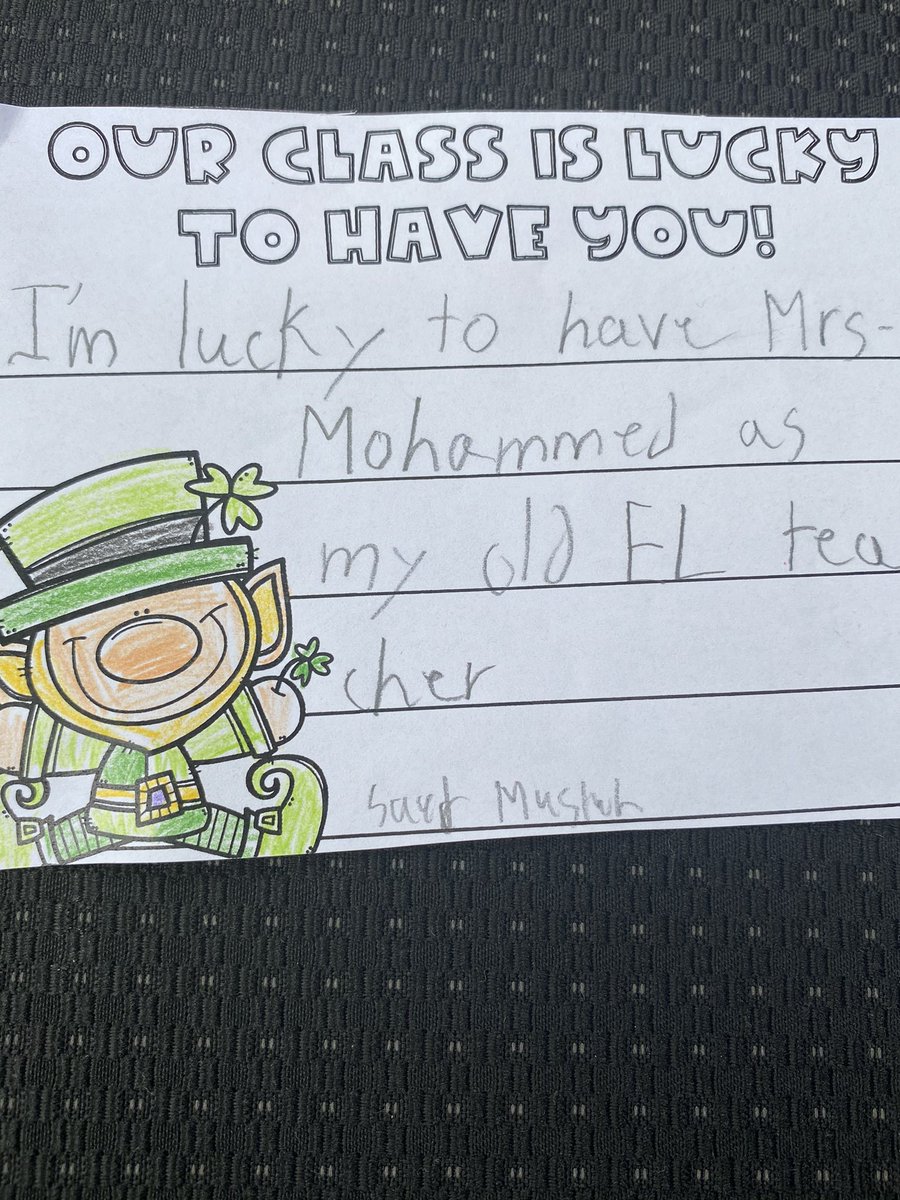 OUR CLASS IS LUCKY
TO HAVE YOU!
I'm lucky to have Mrs-
Mohammed as
my old EL tea
cher